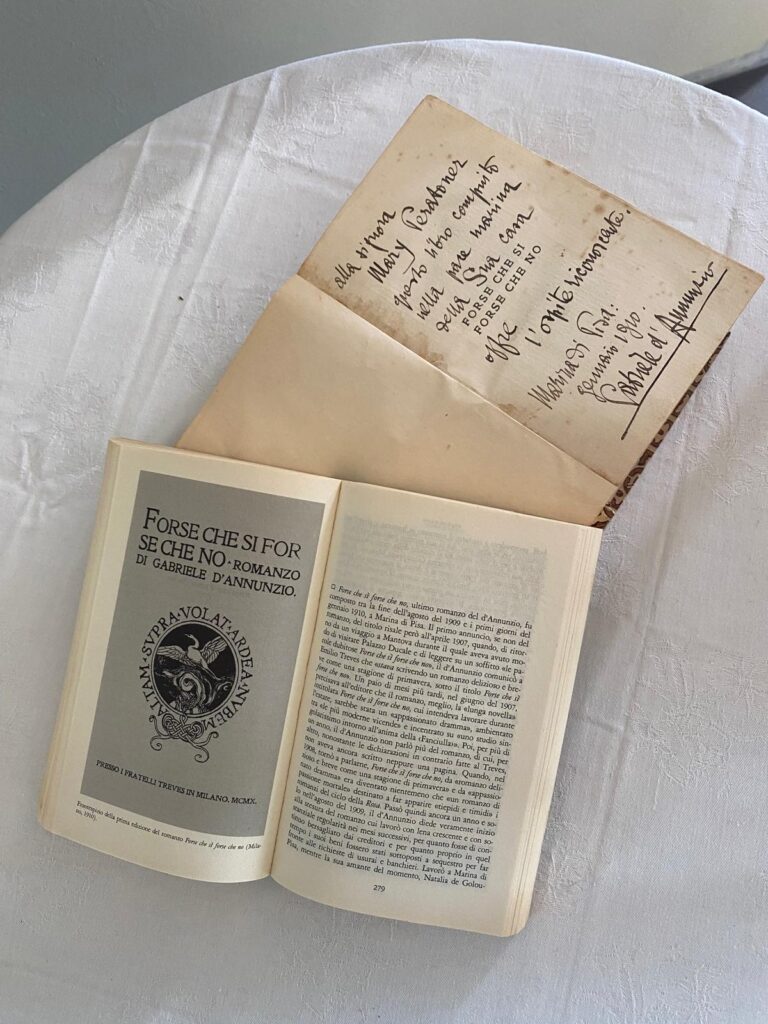 alla signora
Mary Peratoner
questo libro compiuto
nella pace marina
della Sua casa
FORSE CHE SI
FORSE CHE NO
offre
l'ospite riconoscente.
Marina di Pisa:
gennaio 1910.
Gabriele d'Annunzio
FORSE CHE SI FOR
SE CHE NO · ROMANZO
DI GABRIELE D'ANNUNZIO.
ALTAM · SVPRA · VOLAT · ARDEA · NVBEM
PRESSO I FRATELLI TREVES IN MILANO. MCMX.
Frontespizio della prima edizione del romanzo Forse che sì forse che no (Mila-
no, 1910).
□ Forse che sì forse che no, ultimo romanzo del d'Annunzio, fu
composto tra la fine dell'agosto del 1909 e i primi giorni del
gennaio 1910, a Marina di Pisa. Il primo annuncio, se non del
del titolo risale però all'aprile 1907, quando, di ritor-
no da un viaggio a Mantova durante il quale aveva avuto mo-
do di visitare Palazzo Ducale e di leggere su un soffitto «le pa-
role dubitose Forse che sì forse che no», il d'Annunzio comunicò a
Emilio Treves che «stava scrivendo un romanzo delizioso e bre-
ve come una stagione di primavera, sotto il titolo Forse che sì
forse che no». Un paio di mesi più tardi, nel giugno del 1907,
precisava all'editore che il romanzo, meglio, la «lunga novella»
intitolata Forse che sì forse che no, cui intendeva lavorare durante
l'estate, sarebbe stata un «appassionato dramma», ambientato
tra «le più moderne vicende» e incentrato su «uno studio sin-
golarissimo intorno all'anima della «Fanciulla»». Poi, per più di
un anno, il d'Annunzio non parlò più del romanzo, di cui, per
altro, nonostante le dichiarazioni in contrario fatte al Treves,
non aveva ancora scritto neppure una pagina. Quando, nel
1908, tornò a parlarne, Forse che sì forse che no, da «romanzo deli-
zioso e breve come una stagione di primavera» e da «appassio-
nato dramma» era diventato nientemeno che «un romanzo di
passione mortale» destinato a far apparire «tiepidi e timidi» i
romanzi del ciclo della Rosa. Passò quindi ancora un anno e so-
lo nell'agosto del 1909, il d'Annunzio diede veramente inizio
alla stesura del romanzo cui lavorò con lena crescente e con so-
stanziale regolarità nei mesi successivi, per quanto fosse di con-
tinuo bersagliato dai creditori e per quanto proprio in quel
tempo i suoi beni fossero stati sottoposti a sequestro per far
fronte alle richieste di usurai e banchieri. Lavorò a Marina di
Pisa, mentre la sua amante del momento, Natalia de Golou-
279